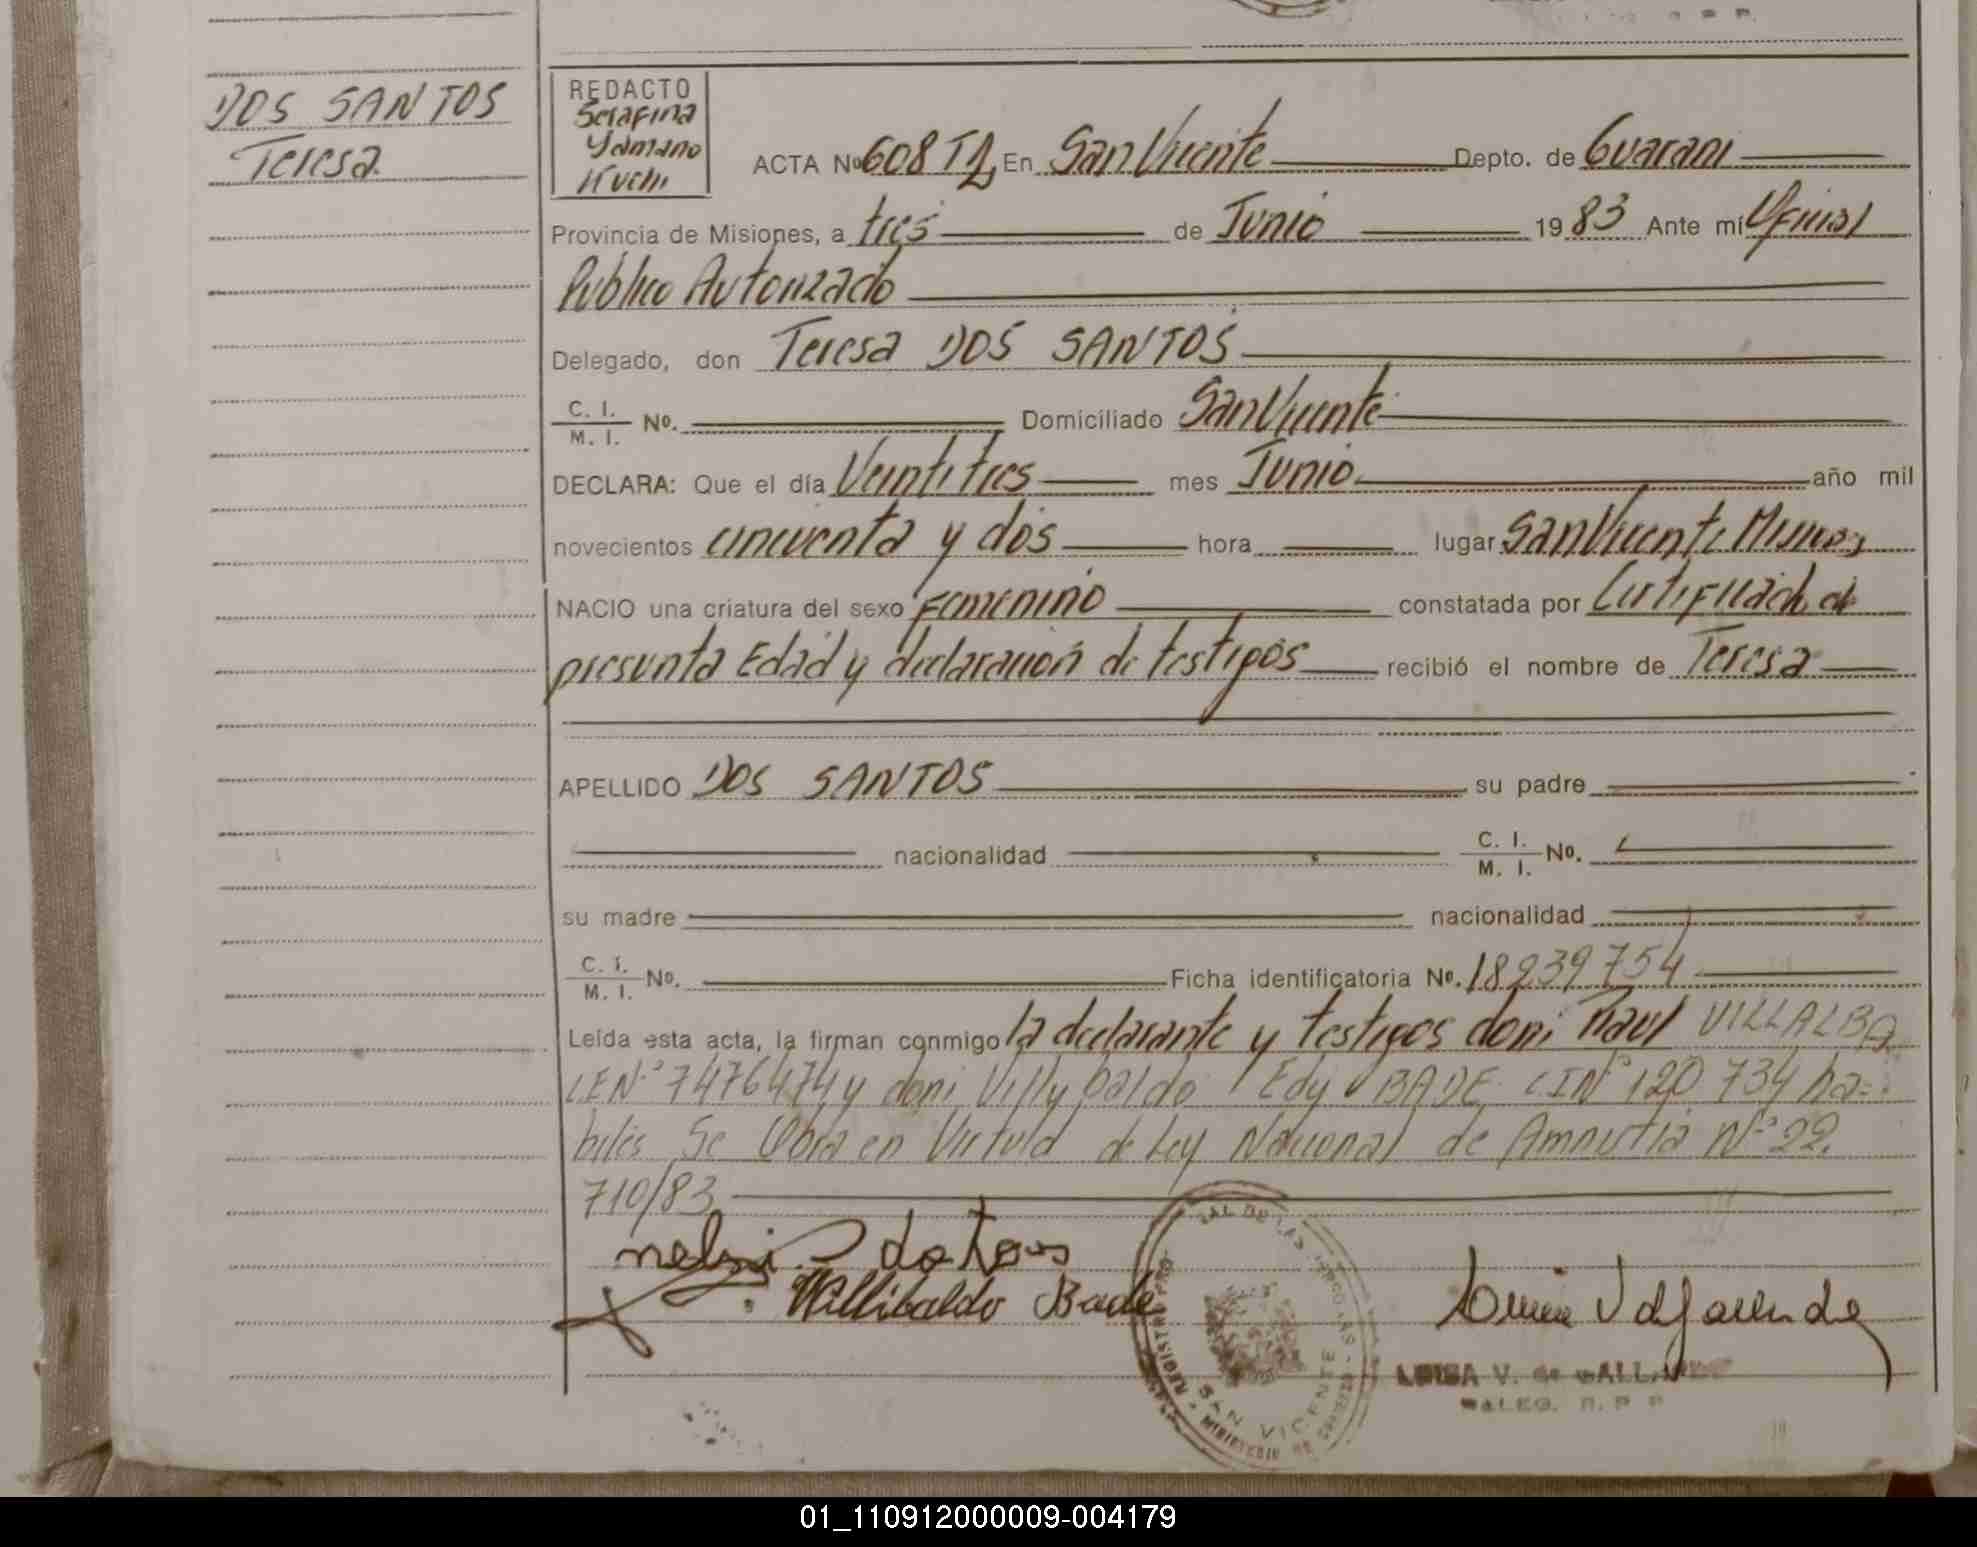 DOS SANTOS
Teresa
REDACTO
Serafina
Yamano
Kuchi
ACTA Nº 608 T2 En San Vicente Depto. de Guarani
Provincia de Misiones, a tres de Junio 1983 Ante mí Oficial
Público Autorizado
Delegado, don Teresa DOS SANTOS
C. I. / M. I. Nº. Domiciliado San Vicente
DECLARA: Que el día Veintitres mes Junio año mil
novecientos cincuenta y dos hora lugar San Vicente Mnes
NACIO una criatura del sexo Femenino constatada por Certificado de
presunta Edad y declaración de testigos recibió el nombre de Teresa
APELLIDO DOS SANTOS su padre
nacionalidad C. I. / M. I. Nº.
su madre nacionalidad
C. I. / M. I. Nº. Ficha identificatoria Nº. 18239754
Leída esta acta, la firman conmigo la declarante y testigos don: Raul VILLALBA
LEN° 7476474 y don: Villybaldo Edy BADE CIN° 120 734 ha=
biles Se Obra en Virtud de Ley Nacional de Amnistia N° 22.
710/83
Willibaldo Bade
REGISTRO PRO IAL DE LAS PERSONAS
SAN VICENTE
MINISTERIO DE GOBIERNO
LUISA V. de GALLARDO
DELEG. R. P. P.
01_110912000009-004179